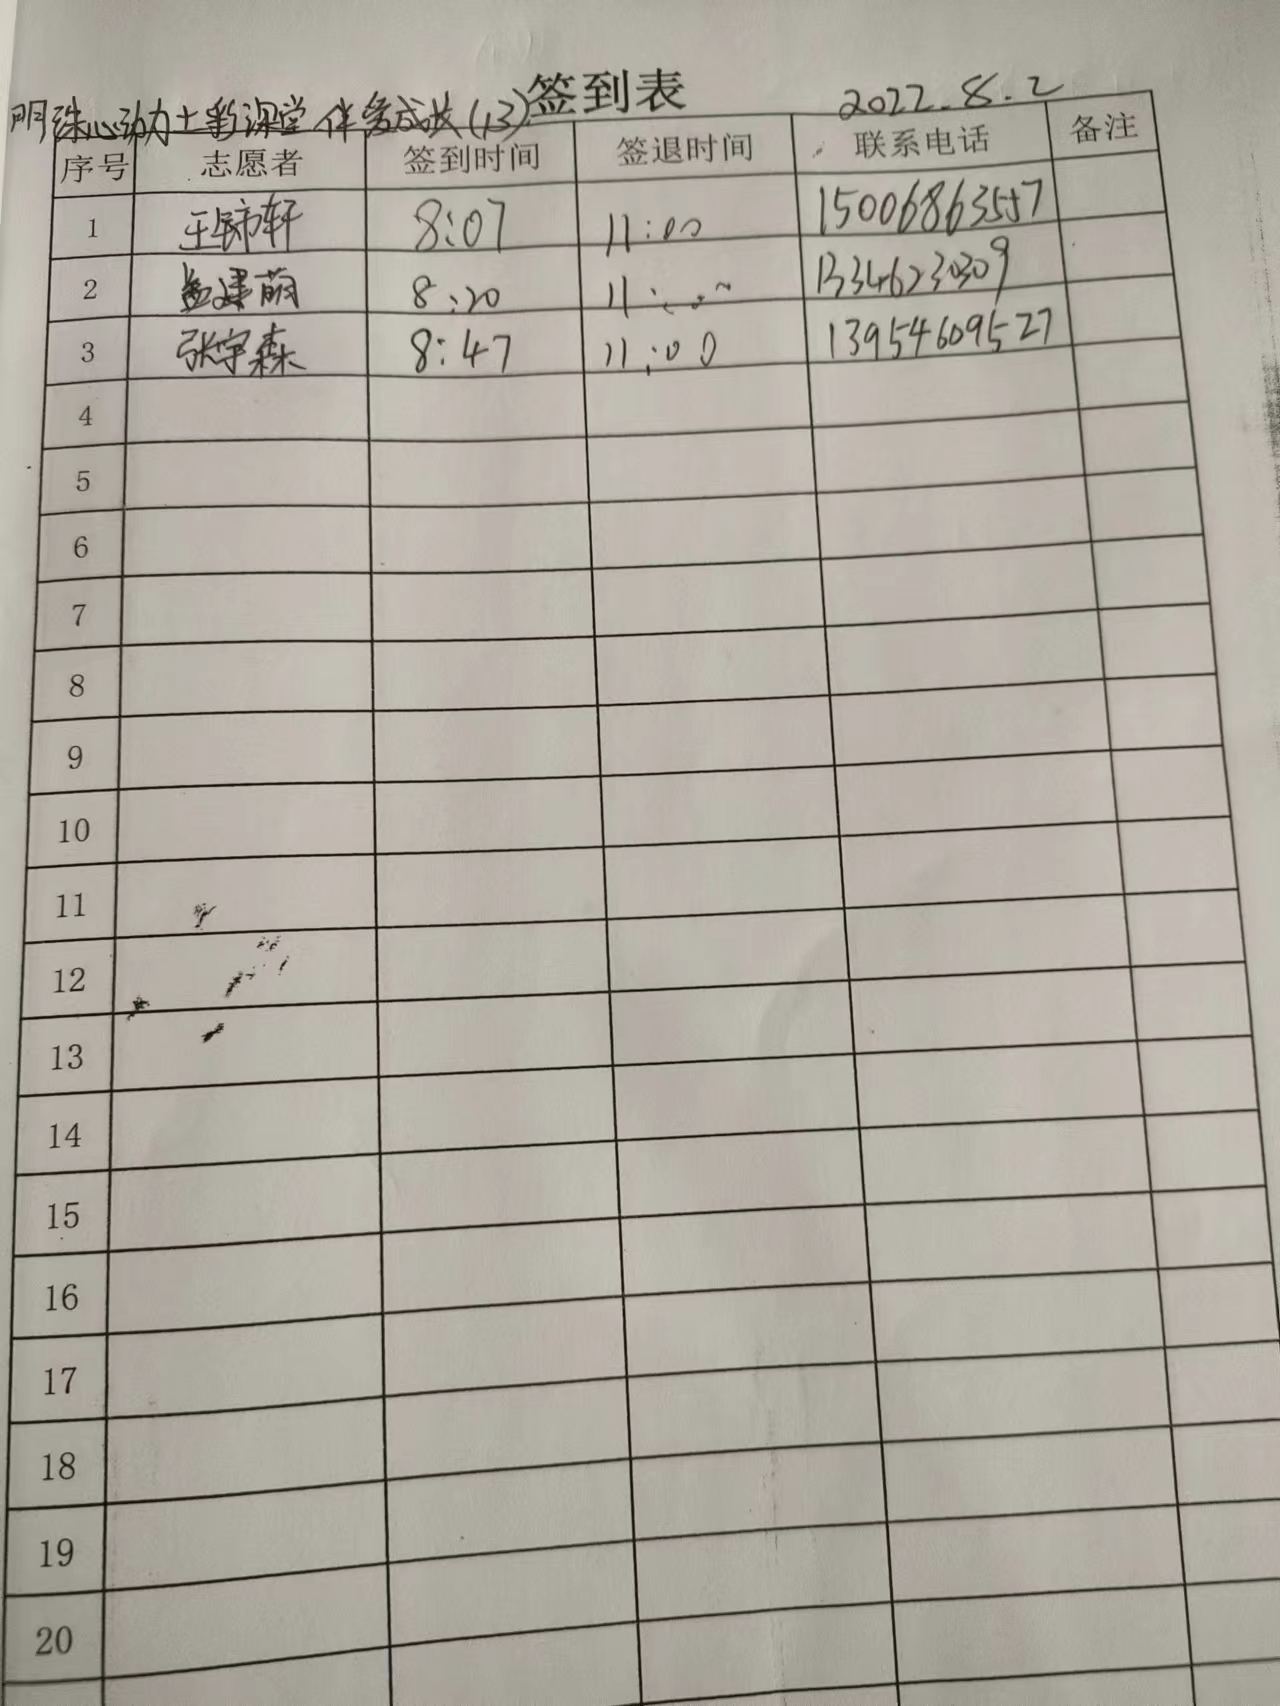 签到表
明珠心动力七彩课堂 伴爱成长(13) 2022.8.2
序号 志愿者 签到时间 签退时间 联系电话 备注
1 王 轩 8:07 11:00 15006863557
2 孟建萌 8:20 11:00 13346230309
3 张宇森 8:47 11:00 13954609527
4
5
6
7
8
9
10
11
12
13
14
15
16
17
18
19
20